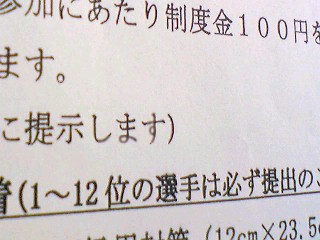 参加にあたり制度金100円を
ます。
に提示します)
着(1～12位の選手は必ず提出のこ
用封筒 (12cm×23.5c